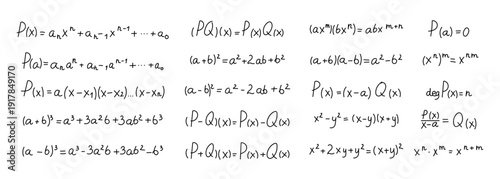 P(x)=aₙxⁿ+aₙ₋₁xⁿ⁻¹+···+a₀
P(a)=aₙaⁿ+aₙ₋₁aⁿ⁻¹+···+a₀
P(x)=a(x-x₁)(x-x₂)...(x-xₙ)
(a+b)³=a³+3a²b+3ab²+b³
(a-b)³=a³-3a²b+3ab²-b³
(PQ)(x)=P(x)Q(x)
(a+b)²=a²+2ab+b²
(a-b)²=a²-2ab+b²
(P-Q)(x)=P(x)-Q(x)
(P+Q)(x)=P(x)+Q(x)
(axᵐ)(bxⁿ)=abxᵐ⁺ⁿ
(a+b)(a-b)=a²-b²
P(x)=(x-a)Q(x)
x²-y²=(x-y)(x+y)
x²+2xy+y²=(x+y)²
P(a)=0
(xⁿ)ᵐ=xⁿᵐ
degP(x)=n
P(x)/x-a=Q(x)
xⁿ·xᵐ=xⁿ⁺ᵐ
Adobe Stock | #1917849170